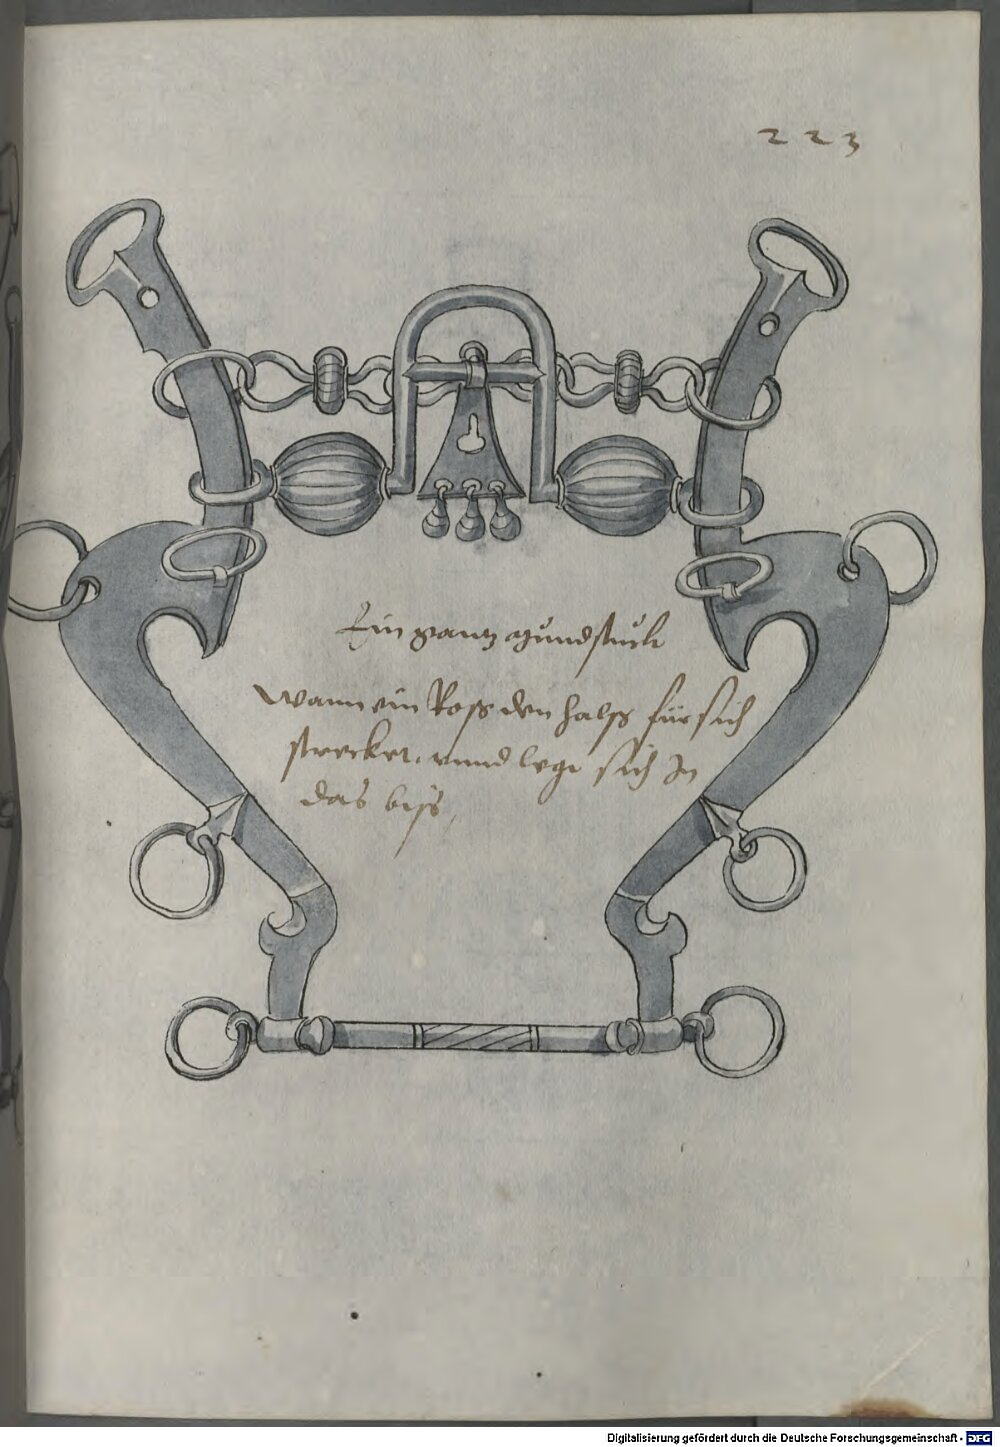 223
Ein gantz mundstuck
Wann ein Ross den halss für sich
strecket. vnnd legt sich In
das biss,
Digitalisierung gefördert durch die Deutsche Forschungsgemeinschaft - DFG